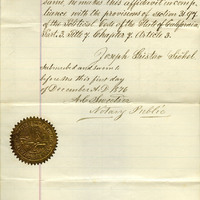 same, he makes this affidavit in comp-
liance with the provisions of section 3197
of the Political Code of the State of California
Part. 3. Title 7 Chapter 7, Article 3.
Joseph Gustav Siebel
Subscribed and sworn to
before me this first day
of December A.D. 1876
Notary Public